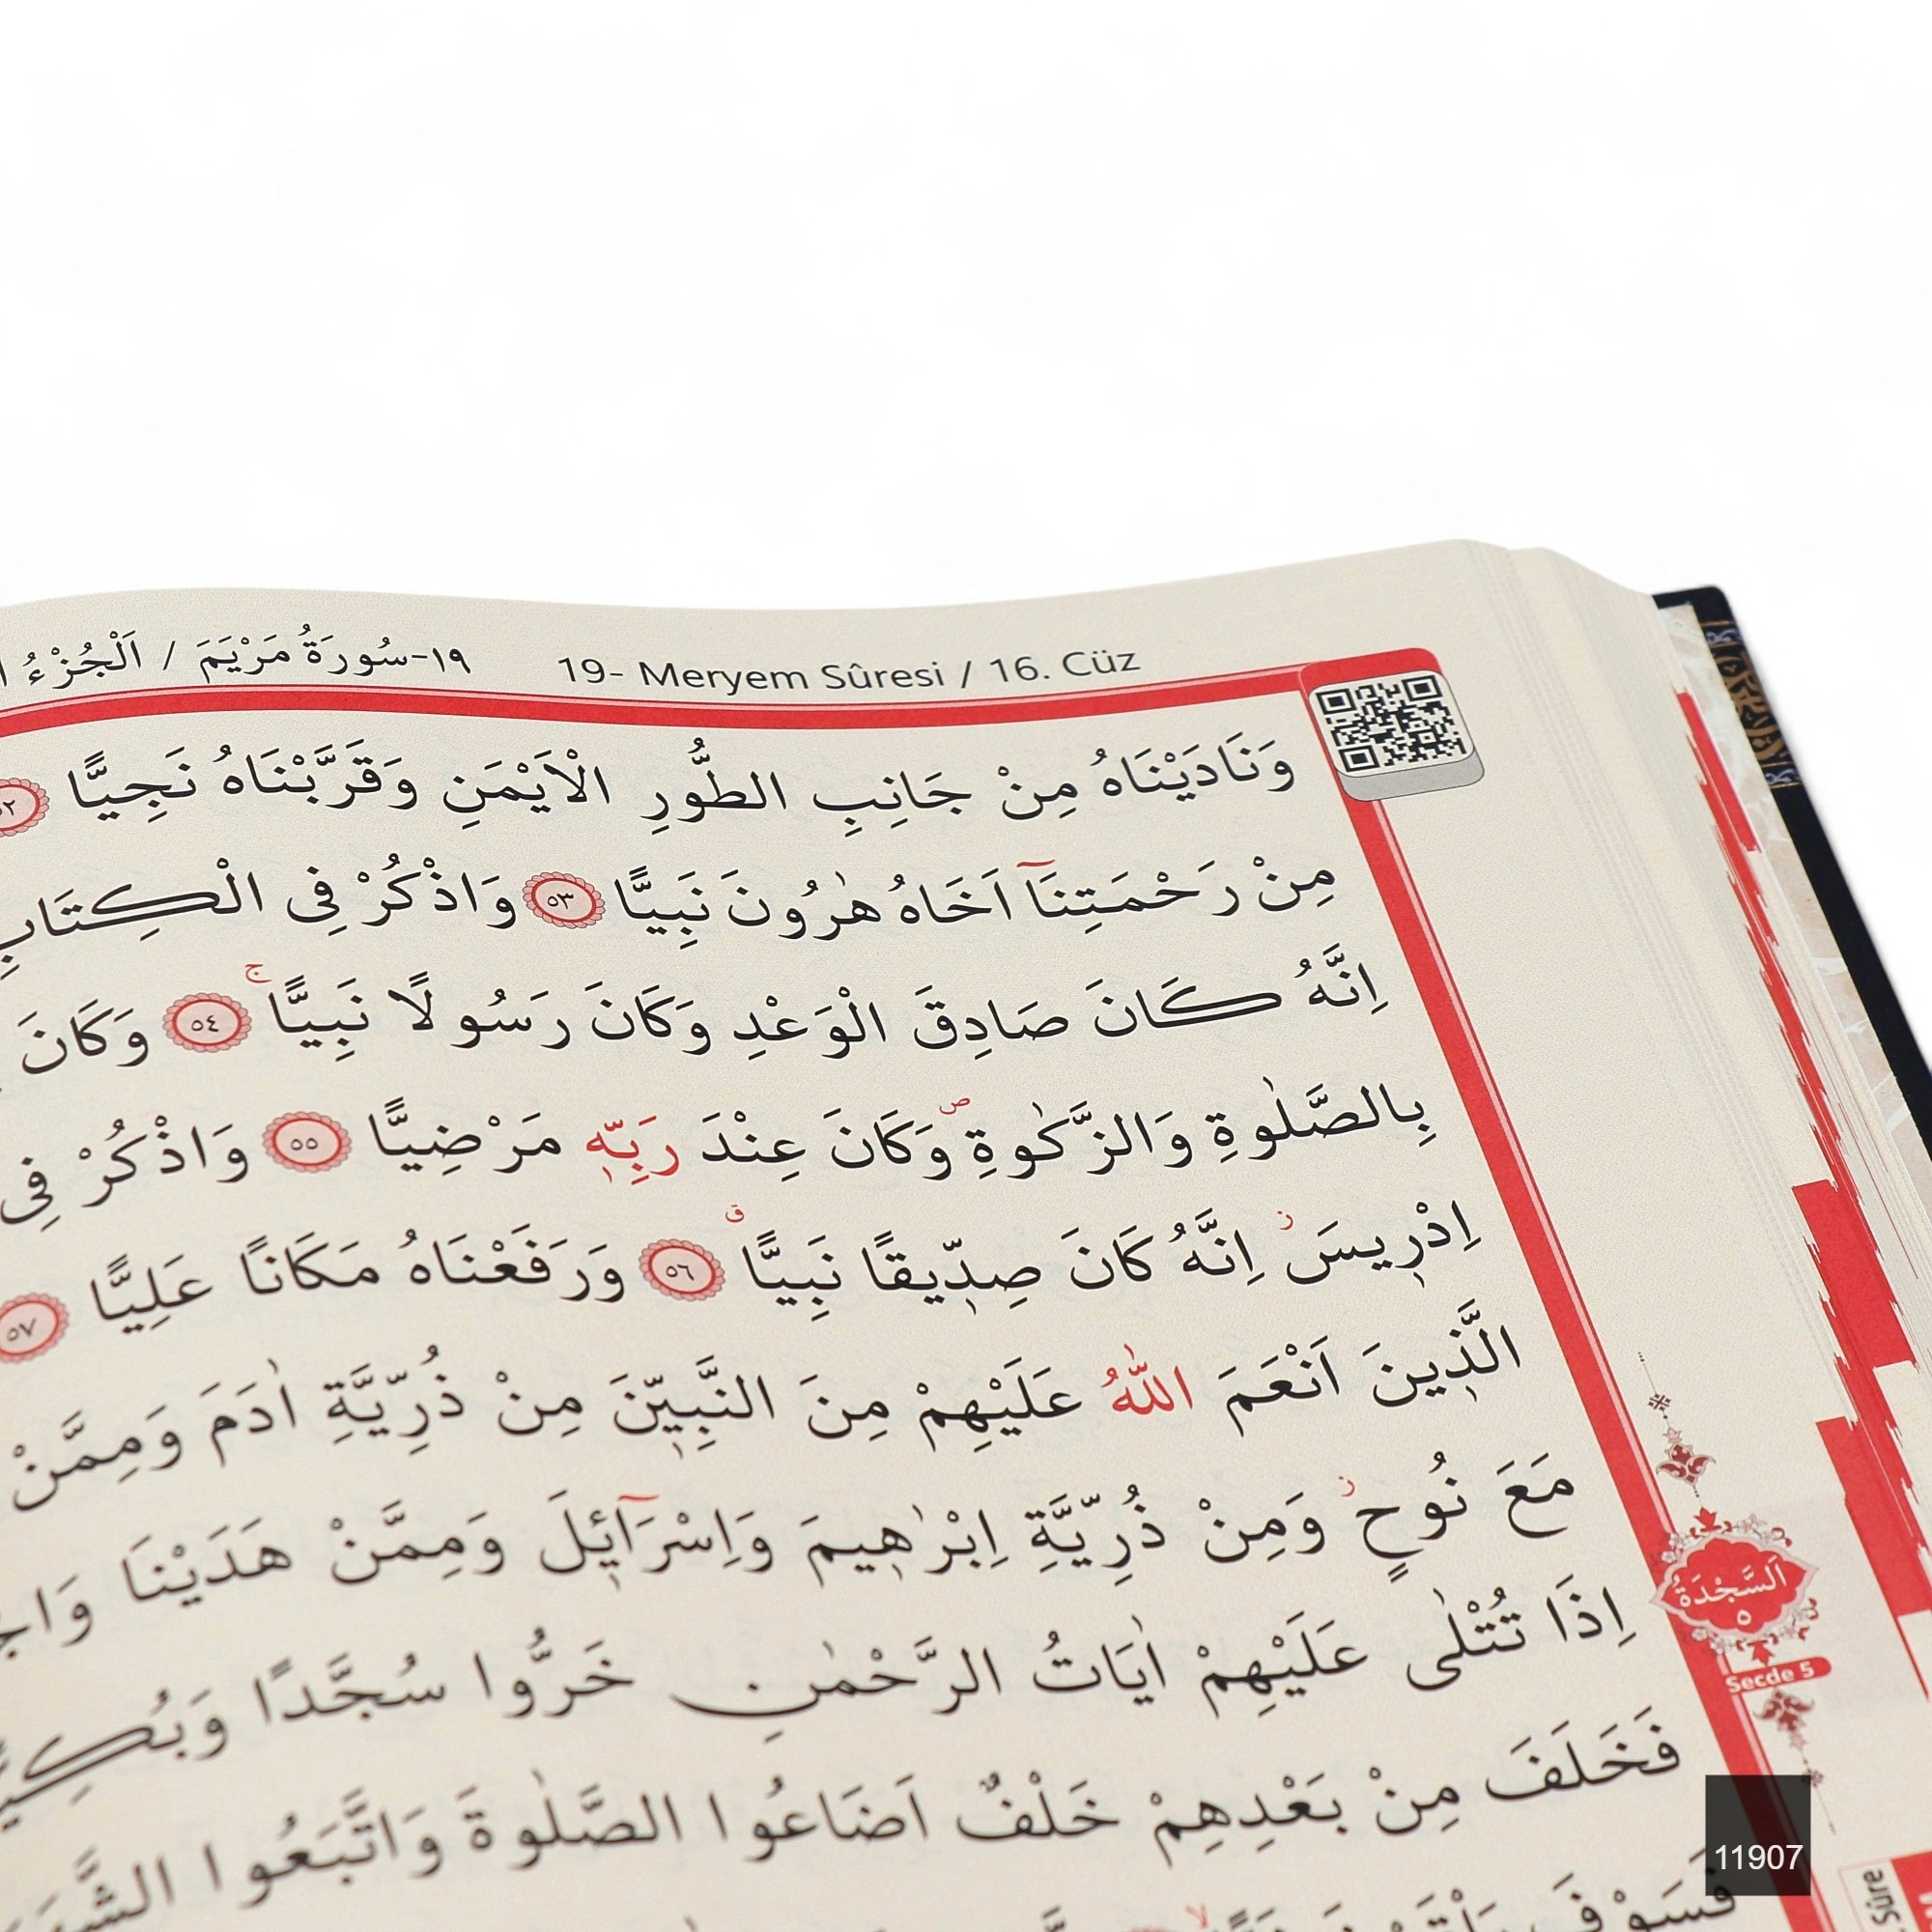 ١٩-سُورَةُ مَرْيَمَ / اَلْجُزْءُ
19- Meryem Sûresi / 16. Cüz
وَنَادَيْنَاهُ مِنْ جَانِبِ الطُّورِ الْاَيْمَنِ وَقَرَّبْنَاهُ نَجِيًّا ٥٢
مِنْ رَحْمَتِنَٓا اَخَاهُ هٰرُونَ نَبِيًّا ٥٣ وَاذْكُرْ فِى الْكِتَابِ
اِنَّهُ كَانَ صَادِقَ الْوَعْدِ وَكَانَ رَسُولًا نَبِيًّاۚ ٥٤ وَكَانَ
بِالصَّلٰوةِ وَالزَّكٰوةِۖ وَكَانَ عِنْدَ رَبِّهٖ مَرْضِيًّا ٥٥ وَاذْكُرْ فِى
اِدْرٖيسَۘ اِنَّهُ كَانَ صِدّٖيقًا نَبِيًّاۗ ٥٦ وَرَفَعْنَاهُ مَكَانًا عَلِيًّا ٥٧
الَّذٖينَ اَنْعَمَ اللّٰهُ عَلَيْهِمْ مِنَ النَّبِيّٖنَ مِنْ ذُرِّيَّةِ اٰدَمَ وَمِمَّنْ
مَعَ نُوحٍؗ وَمِنْ ذُرِّيَّةِ اِبْرٰهٖيمَ وَاِسْرَٓائٖلَ وَمِمَّنْ هَدَيْنَا
اِذَا تُتْلٰى عَلَيْهِمْ اٰيَاتُ الرَّحْمٰنِ خَرُّوا سُجَّدًا وَبُكِيًّا
اَلسَّجْدَةُ
٥
Secde 5
فَخَلَفَ مِنْ بَعْدِهِمْ خَلْفٌ اَضَاعُوا الصَّلٰوةَ وَاتَّبَعُوا
فَسَوْفَ
Sûre
11907